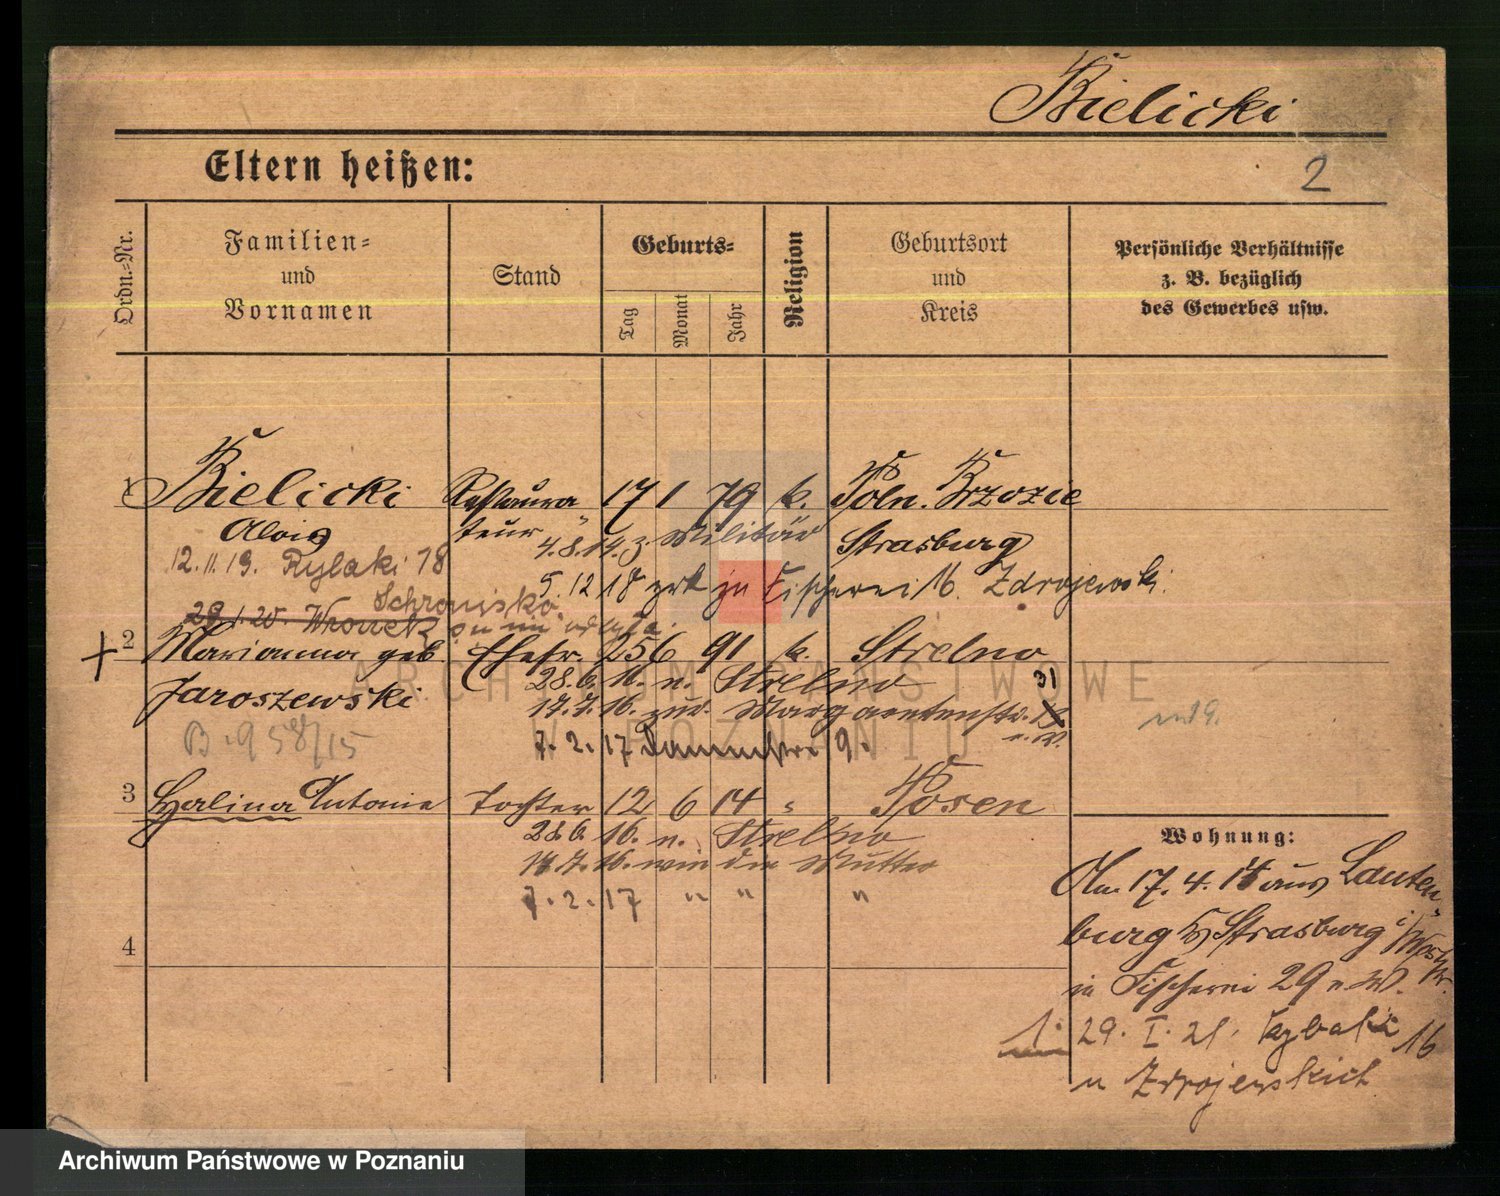 Bielicki
Eltern heißen:
2
Ordn.=Nr.
Familien=
und
Vornamen
Stand
Geburts=
Tag
Monat
Jahr
Religion
Geburtsort
und
Kreis
Persönliche Verhältnisse
z. B. bezüglich
des Gewerbes usw.
1 Bielicki Restaura= 17 1 79 k. Poln. Brzozie
Alois teur Strasburg
4.8.14. z. Militär
12.11.19. Rybaki 18
5.12 18 zrk zu Fischerei 16. Zdrojewski.
Schronisko
29.1.20. Wronek
2 Marianna geb. Ehefr. 25 6 91 k. Strelno
Jaroszewski
28.6.16. n. Strelno
17.7.16. zur. Margaretenstr. 31
n. W.
7.2.17 Dammstr. 9.
B. 958/15
3 Halina Antonie Tochter 12 6 14 " Posen
28.6.16. n. Strelno
17.7.16. wie die Mutter
7.2.17 " " "
4
Wohnung:
Am 17.4.14 aus Lauten=
burg Kr. Strasburg i/Westpr.
in Fischerei 29 n. W.
1. 29. I. 21. Rybaki 16
u Zdrojewskich
ARCHIWUM PAŃSTWOWE
W POZNANIU
Archiwum Państwowe w Poznaniu